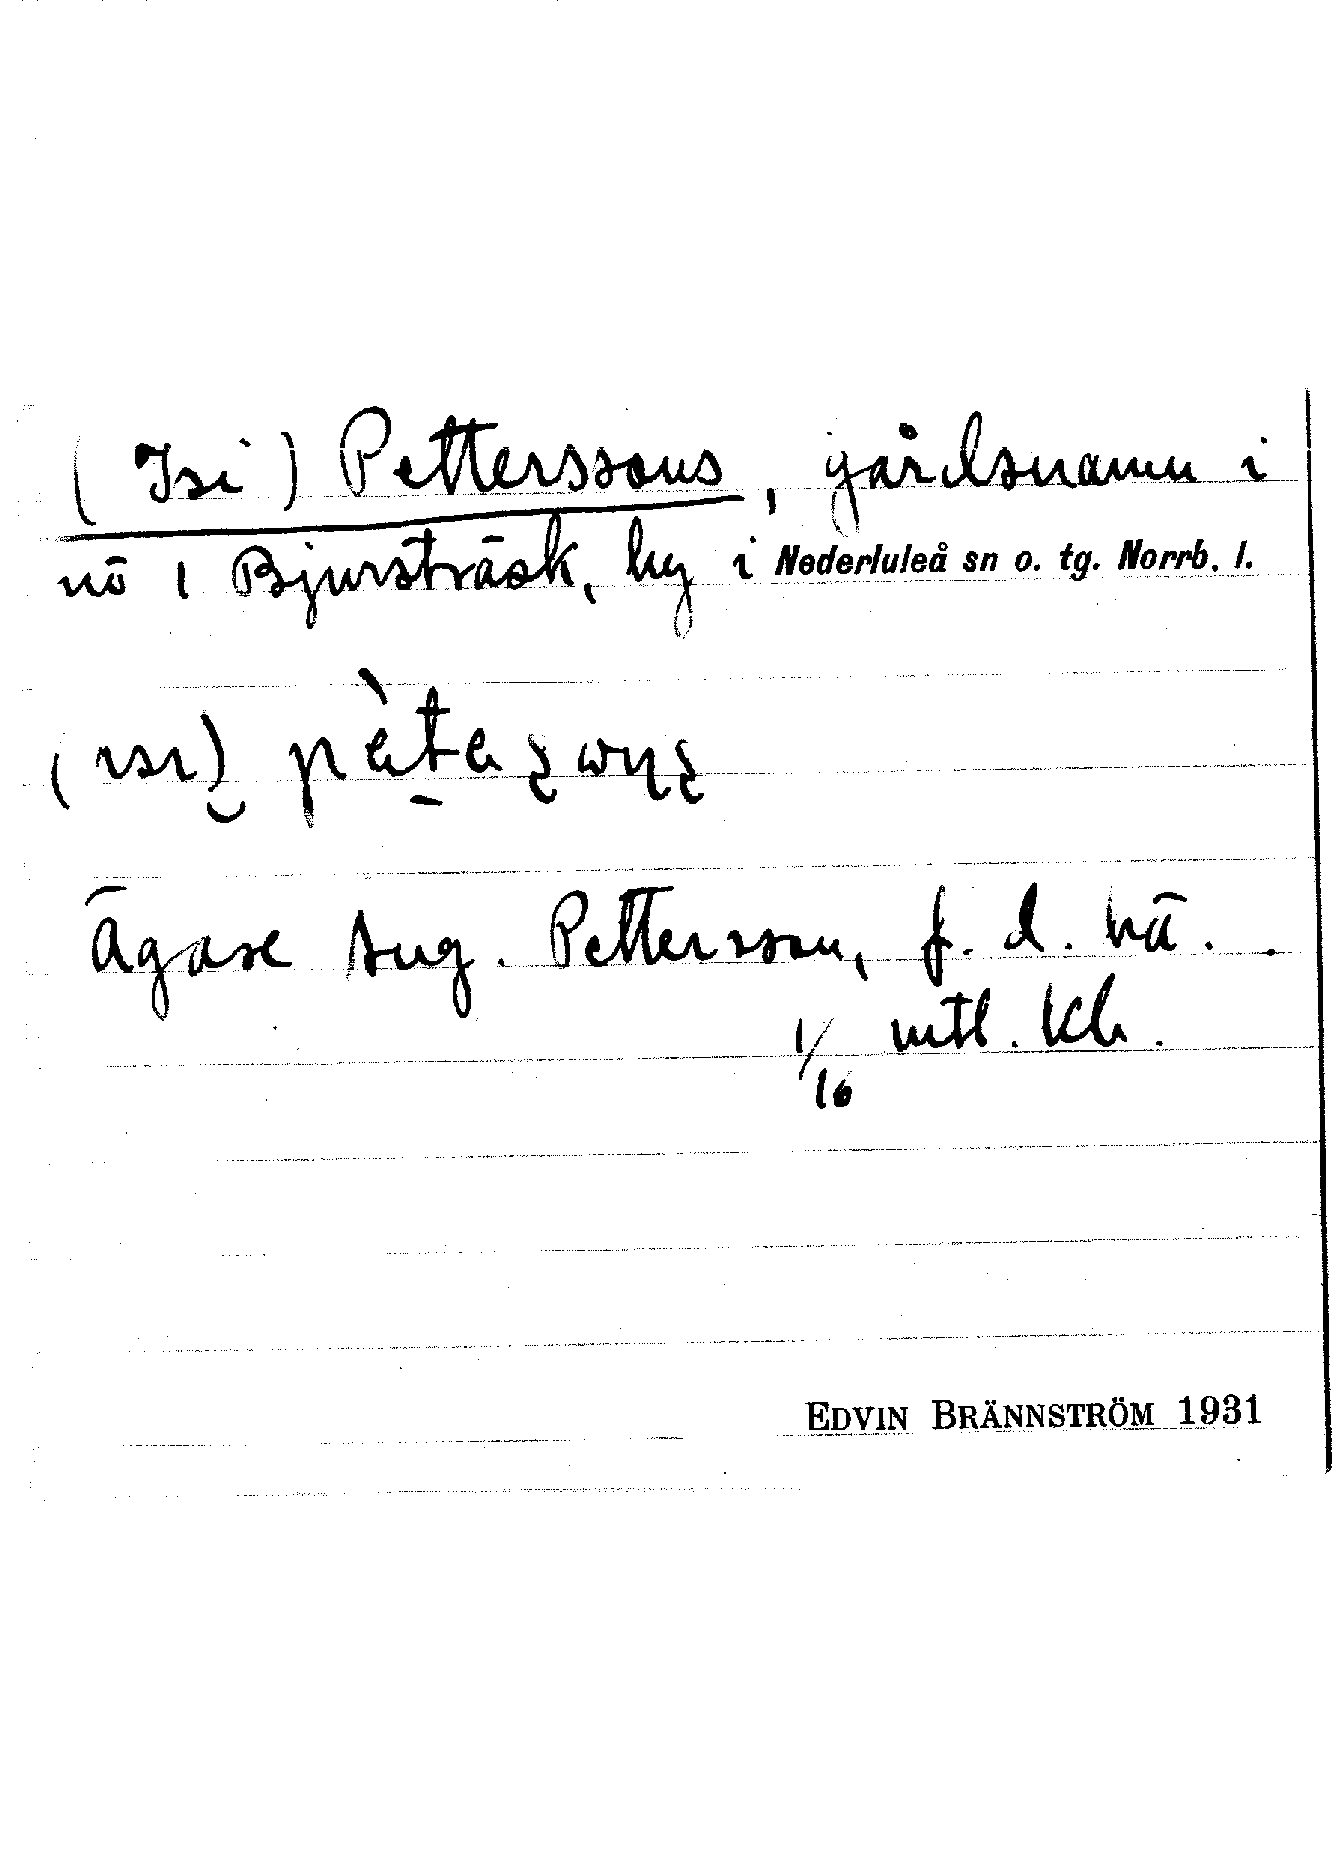 (Isi) Petterssons, gårdsnamn i
nö 1 Bjursträsk, by i Nederluleå sn o. tg. Norrb. l.
Ägare Aug. Pettersson, f. d. hä.
1/16 mtl. kb.
EDVIN BRÄNNSTRÖM 1931